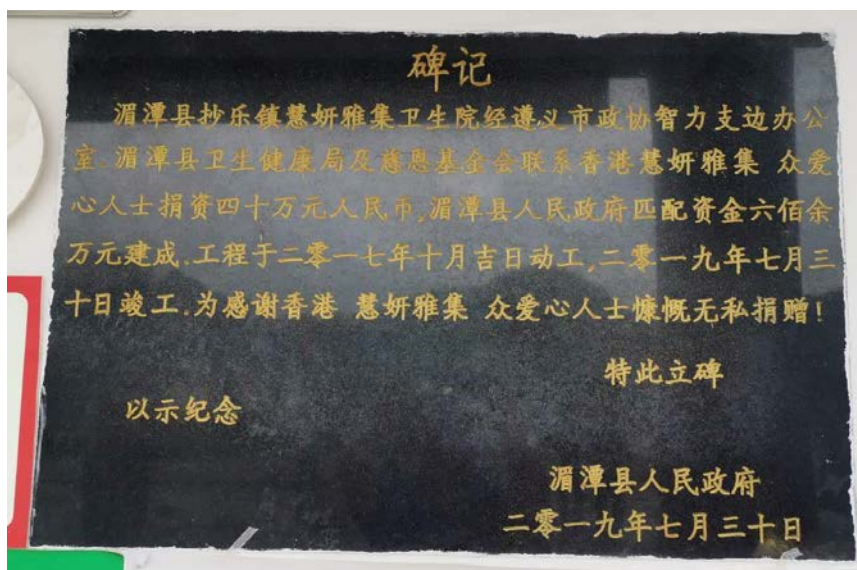 碑记
湄潭县抄乐镇慧妍雅集卫生院经遵义市政协智力支边办公
室.湄潭县卫生健康局及慈恩基金会联系香港慧妍雅集 众爱
心人士捐资四十万元人民币,湄潭县人民政府匹配资金六佰余
万元建成.工程于二零一七年十月吉日动工,二零一九年七月三
十日竣工.为感谢香港 慧妍雅集 众爱心人士慷慨无私捐赠!
特此立碑
以示纪念
湄潭县人民政府
二零一九年七月三十日